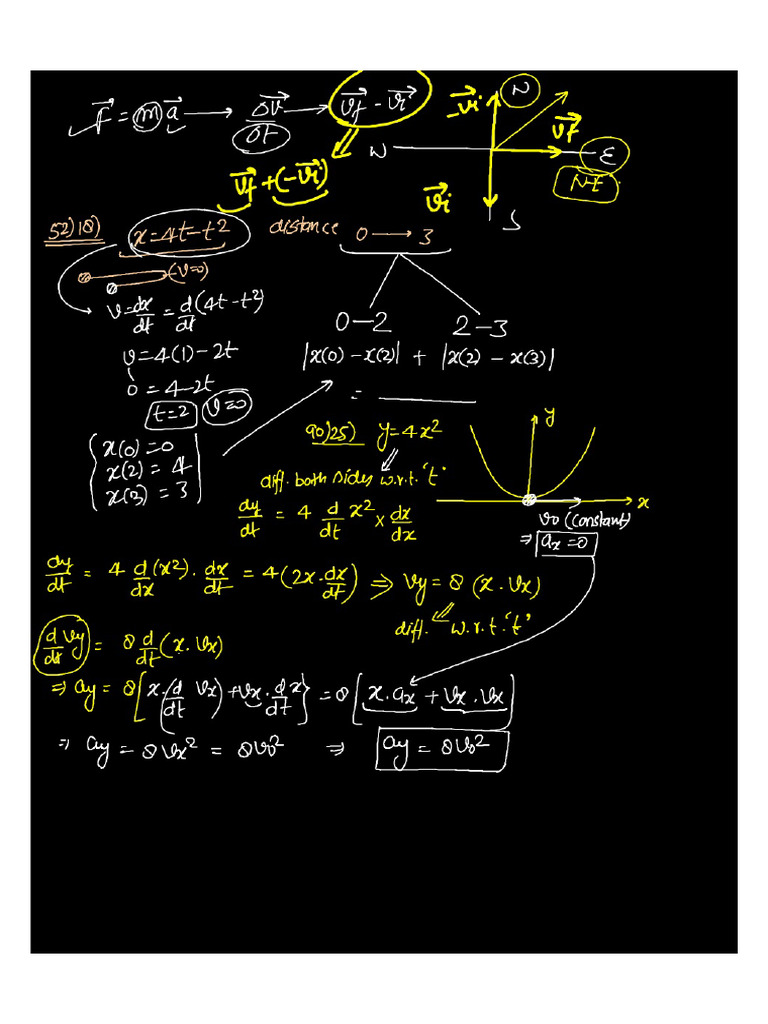 F⃗ = m a⃗ → Δv⃗/Δt → v⃗f - v⃗i
v⃗f + (-v⃗i)
-v⃗i N
W v⃗f E
N-E
v⃗i
S
52)18) x=4t-t² distance 0 → 3
(v=0)
v=dx/dt = d/dt (4t-t²)
0-2 2-3
v=4(1)-2t |x(0)-x(2)| + |x(2)-x(3)|
0=4-2t =
t=2 v=0
x(0)=0
x(2)=4
x(3)=3
90)25) y=4x²
diff. both sides w.r.t. 't'
dy/dt = 4 d/dt x² × dx/dx
y
x
v0 (constant)
⇒ ax=0
dy/dt = 4 d/dx (x²). dx/dt = 4(2x.dx/dt) ⇒ vy=8 (x.vx)
diff. w.r.t. 't'
dvy/dt = 8 d/dt (x.vx)
⇒ ay=8[x.(d/dt vx)+vx.dx/dt} = 8[x.ax + vx.vx]
⇒ ay = 8vx² = 8v0² ⇒ ay = 8v0²